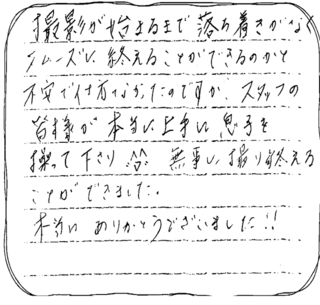 撮影が始まるまで落ち着きがなく
スムーズに終えることができるのかと
不安で仕方なかったのですが、スタッフの
皆様が本当に上手に息子を
操って下さり 無事に撮り終える
ことができました。
本当にありがとうございました!!